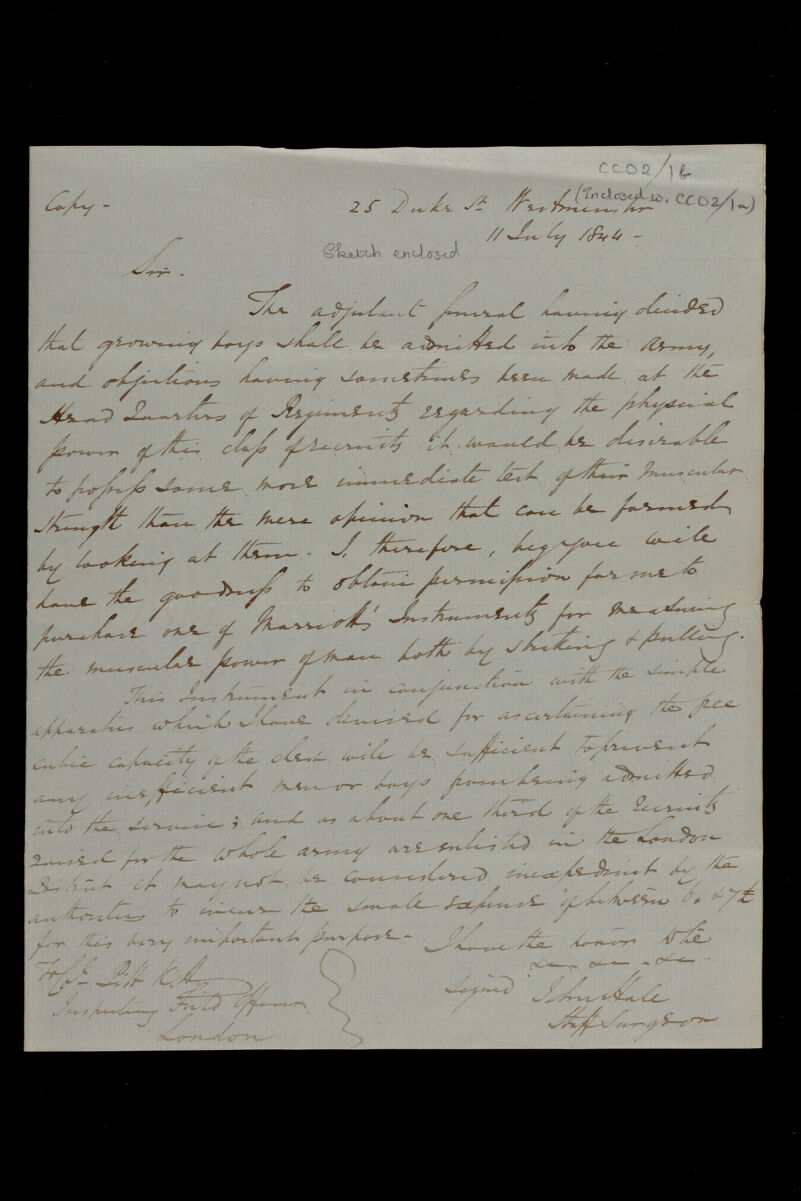 CC02/1b
(Enclosed w. CC02/1a)
Copy - 25 Duke St Westminster
11 July 1844 -
Sketch enclosed
Sir.
The adjutant General having decided
that growing boys shall be admitted into the Army,
and objections having sometimes been made at the
Head Quarters of Regiments regarding the physical
power of this class of recruits it would be desirable
to possess some more immediate test of their muscular
strength than the mere opinion that can be formed
by looking at them - I, therefore, beg you will
have the goodness to obtain permission for me to
purchase one of Marriott's Instruments for measuring
the muscular power of man both by striking & pulling.
This Instrument in conjunction with the simple
apparatus which I have devised for ascertaining the free
cubic capacity of the chest will be sufficient to prevent
any inefficient men or boys from being admitted
into the service; and as about one third of the recruits
raised for the whole army are enlisted in the London
District it may not be considered inexpedient by the
authorities to incur the small expense of between 6. & 7£
for this very important purpose -
I have the honor to be
&c - &c - &c -
signed John Hale
Staff Surgeon
To Col. Pitt K.H
Inspecting Field Officer
London